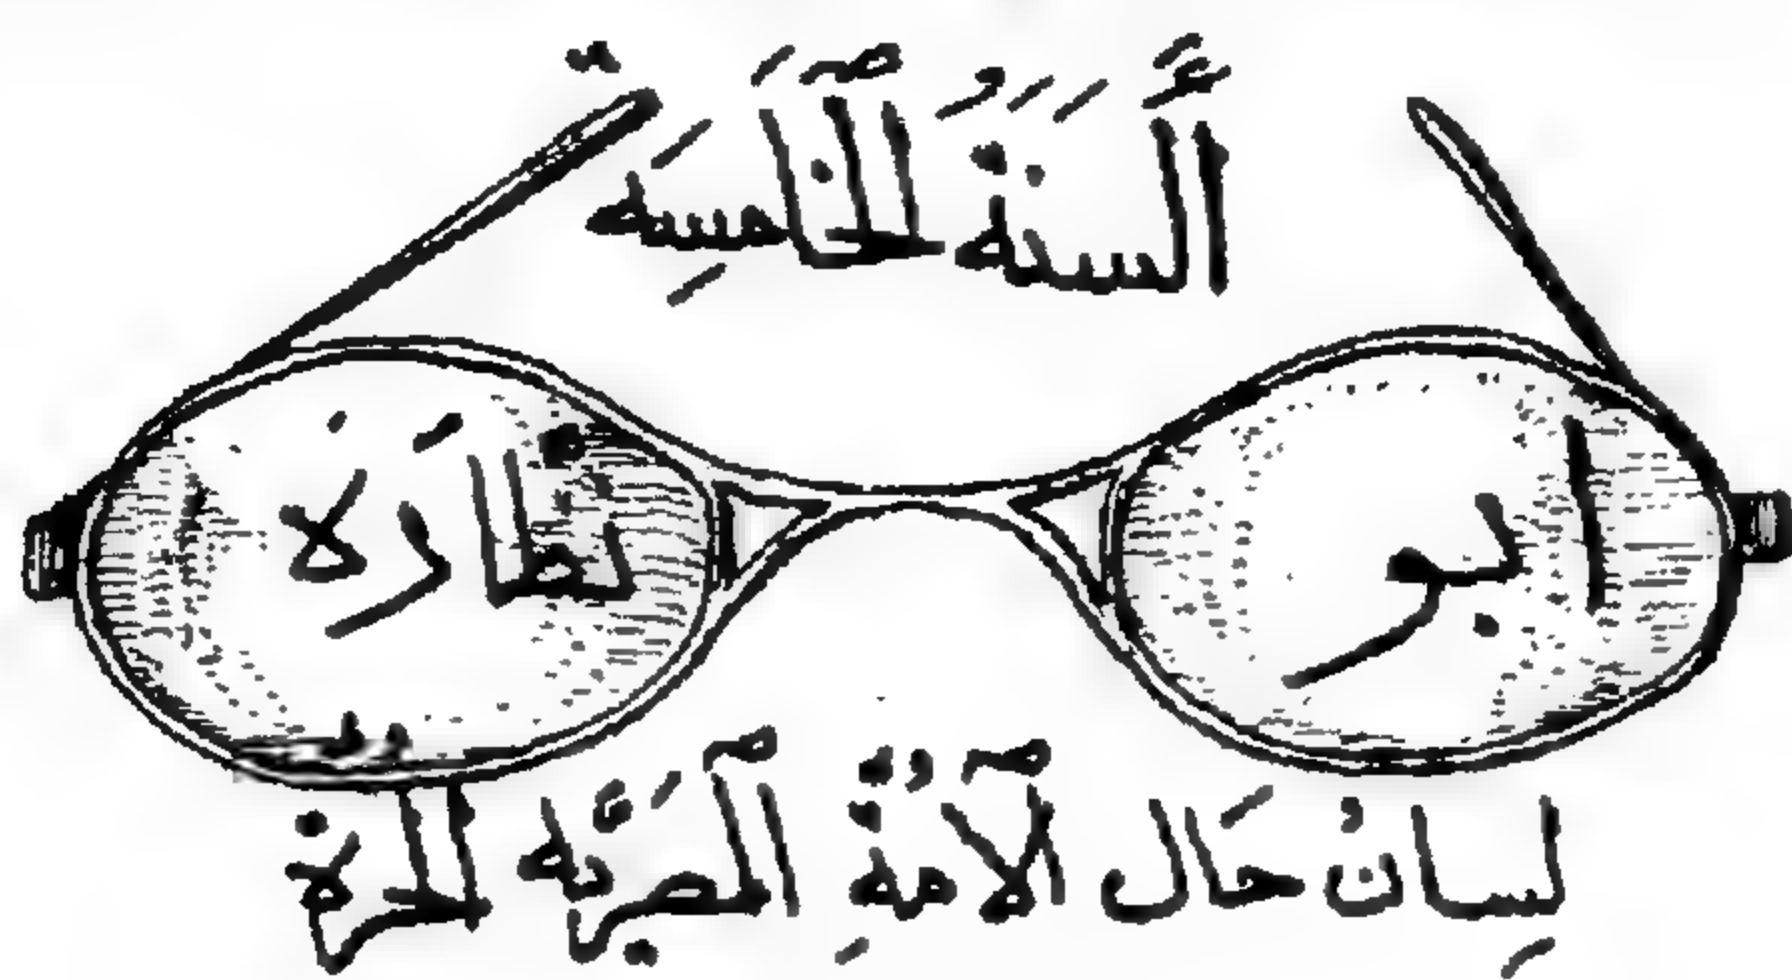 اَلسَّنَةُ الْخَامِسَةُ
ابو نظارَة
لِسانُ حَال الْأُمةِ الْمصرِيَّة الْحرة